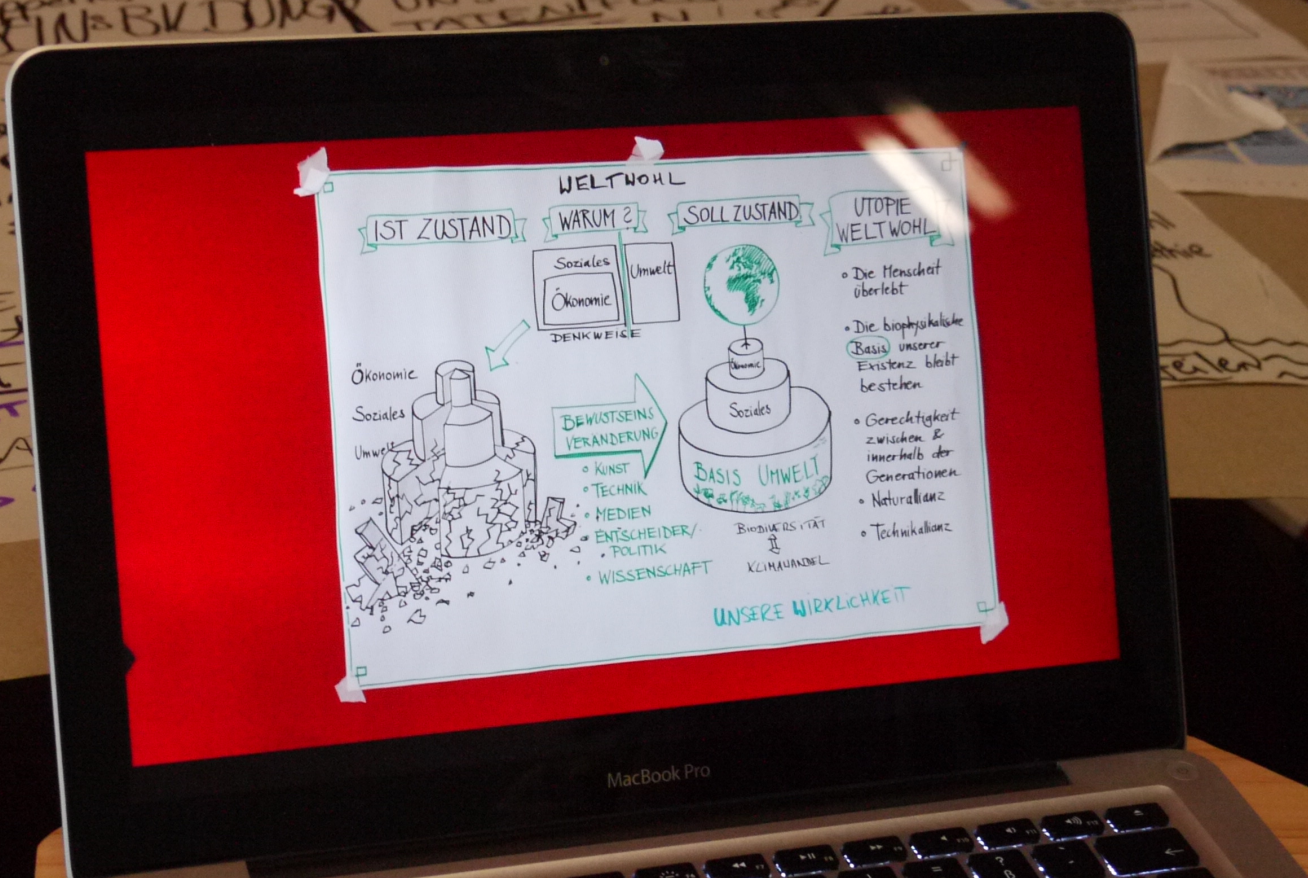 INS BILDUNG
WELTWOHL
IST ZUSTAND
WARUM?
SOLL ZUSTAND
UTOPIE
WELTWOHL
Soziales
Ökonomie
Umwelt
DENKWEISE
Ökonomie
Soziales
Umwelt
BEWUSTSEINS
VERÄNDERUNG
• KUNST
• TECHNIK
• MEDIEN
• ENTSCHEIDER/
• POLITIK
• WISSENSCHAFT
Ökonomie
Soziales
BASIS UMWELT
BIODIVERSITÄT
KLIMAWANDEL
• Die Menscheit
überlebt
• Die biophysikalische
Basis unserer
Existenz bleibt
bestehen
• Gerechtigkeit
zwischen &
innerhalb der
Generationen
• Naturallianz
• Technikallianz
UNSERE WIRKLICHKEIT
MacBook Pro